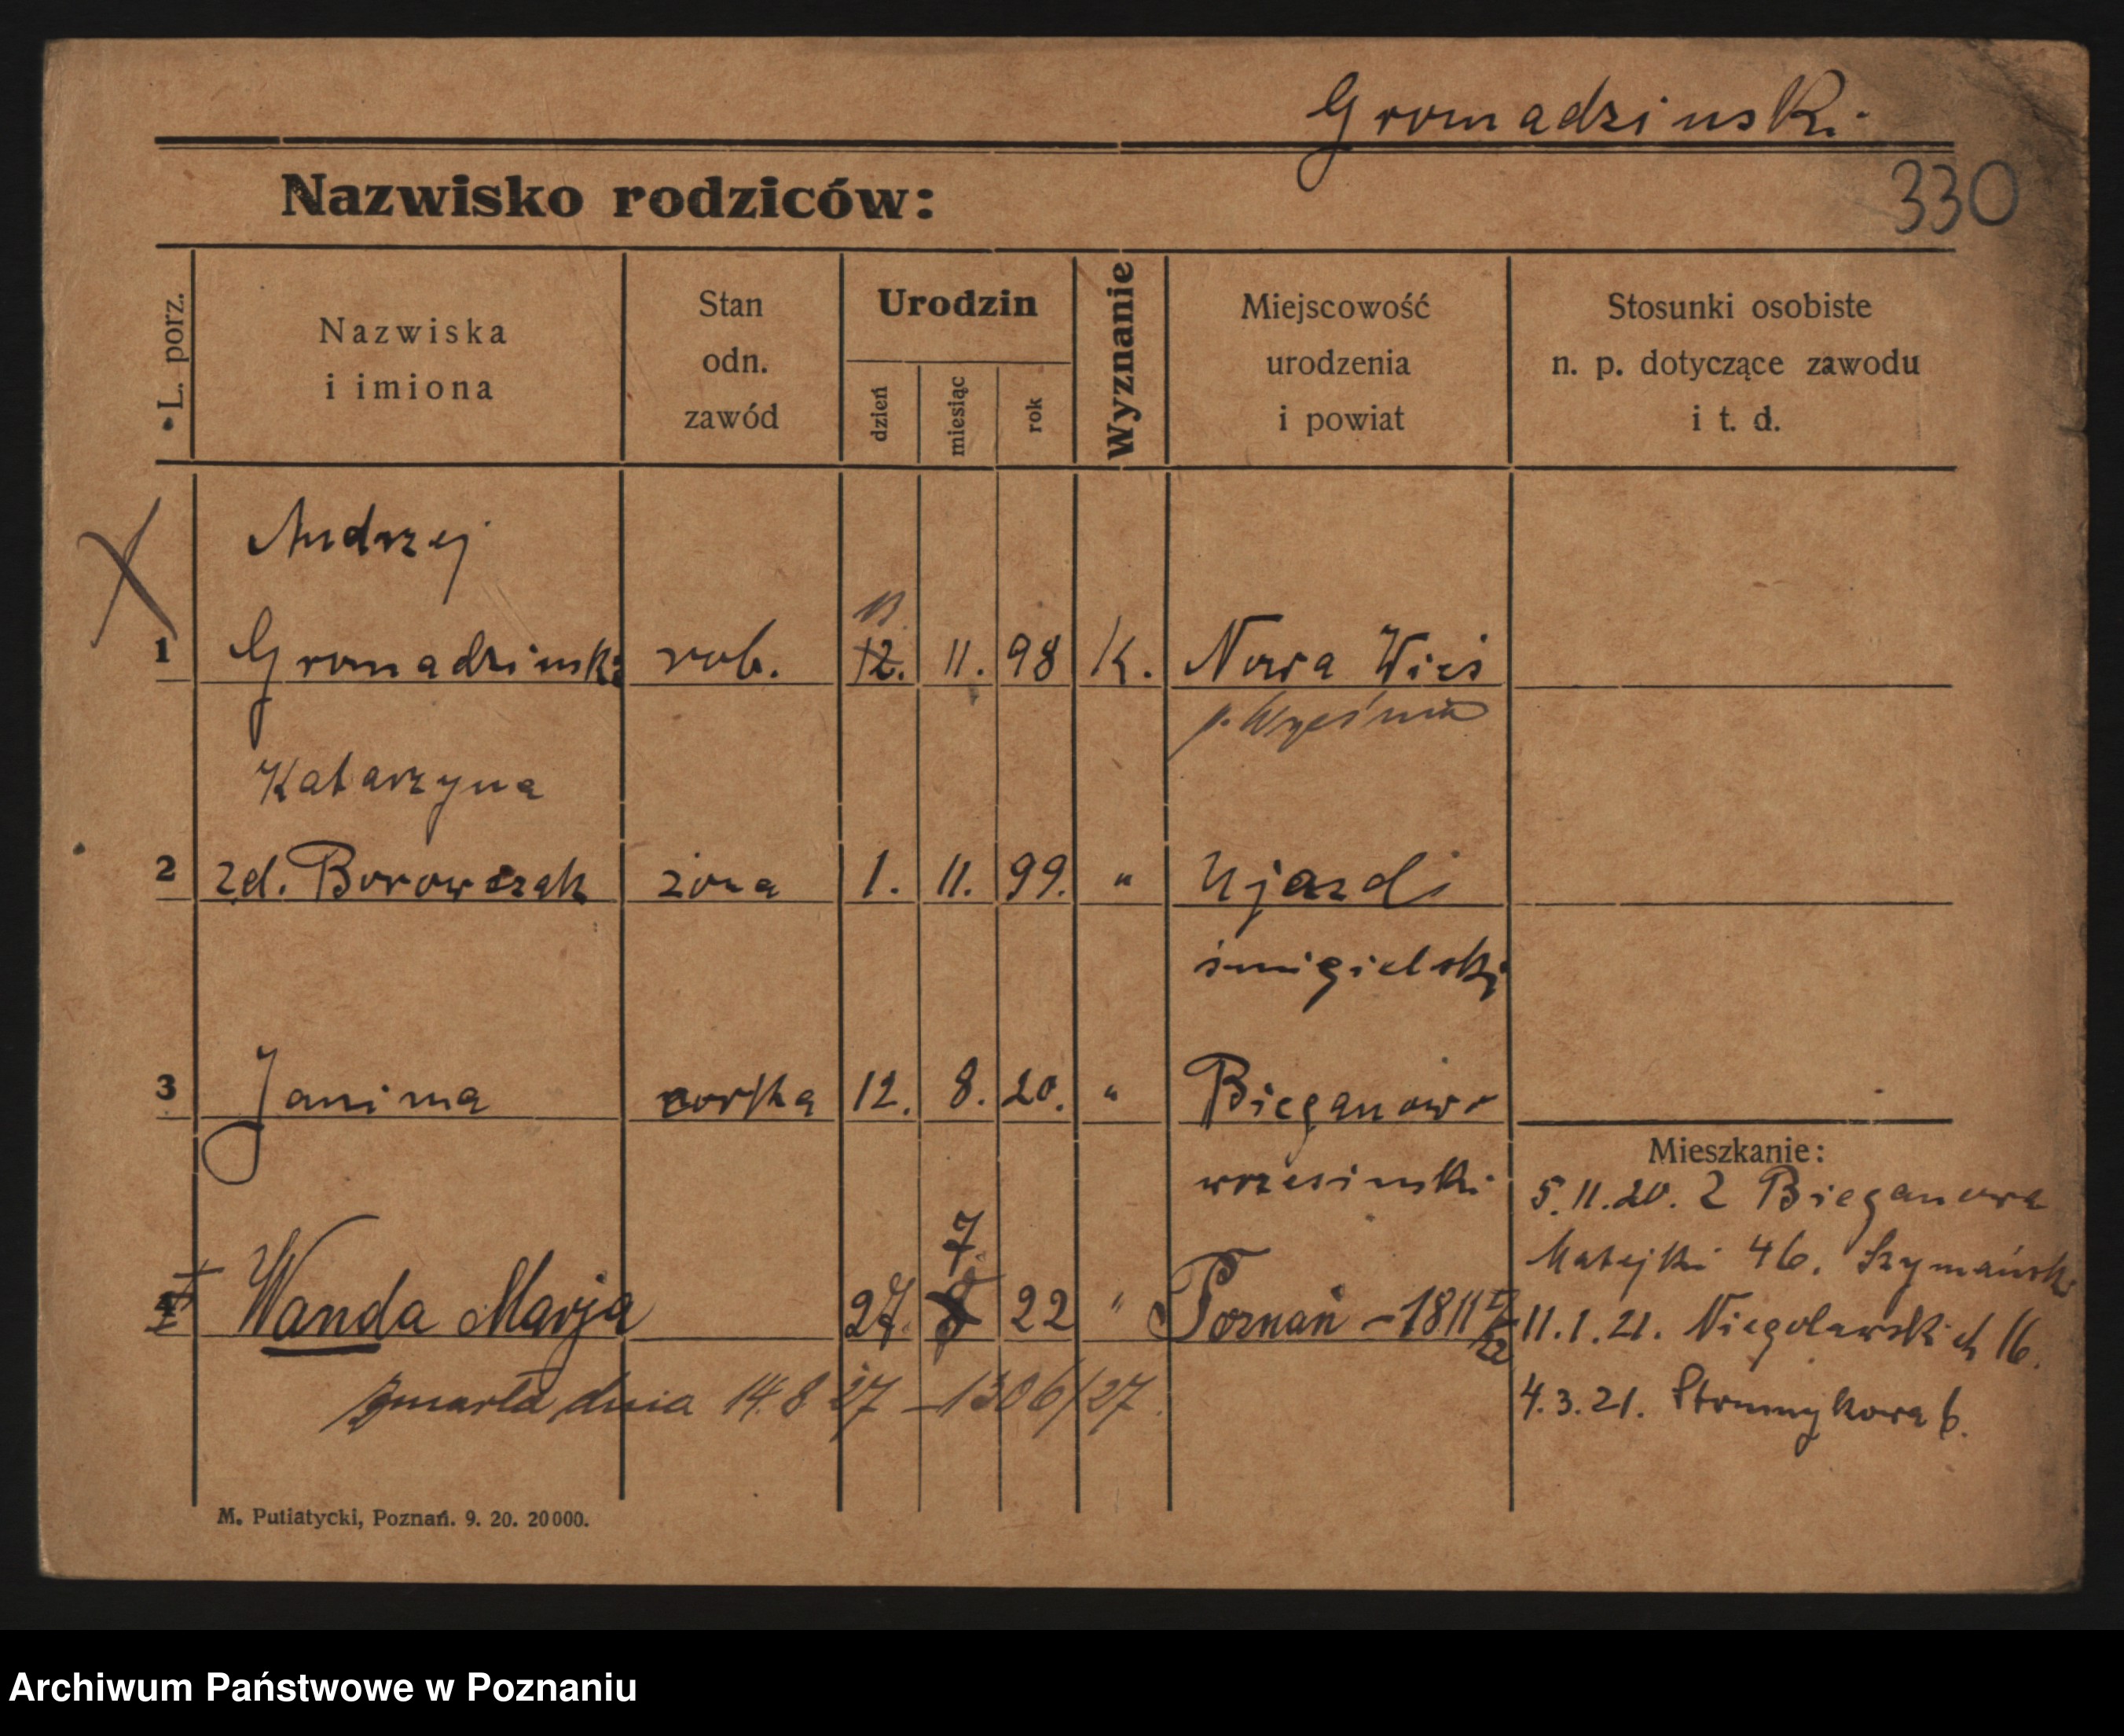 Gromadzinski
330
Nazwisko rodziców:
L. porz.
Nazwiska
i imiona
Stan
odn.
zawód
Urodzin
dzień
miesiąc
rok
Wyznanie
Miejscowość
urodzenia
i powiat
Stosunki osobiste
n. p. dotyczące zawodu
i t. d.
Andrzej
11
1 Gromadzinski rob. 12. 11. 98 K. Nowa Wieś
p. Września
Katarzyna
2 zd. Borowczak żona 1. 11. 99. " Ujazd
śmigielski
3 Janina corka 12. 8. 20. " Bieganowo
wrzesinski
Mieszkanie:
5.11.20. Z Bieganowa
Matejki 46.
11.1.21. Niegolewskich 16.
4.3.21. Strumykowa 6.
7.
4 Wanda Marja 27. 8 22 " Poznań - 1811
zmarła dnia 14.8 27 - 1306/27.
M. Putiatycki, Poznań. 9. 20. 20000.
Archiwum Państwowe w Poznaniu